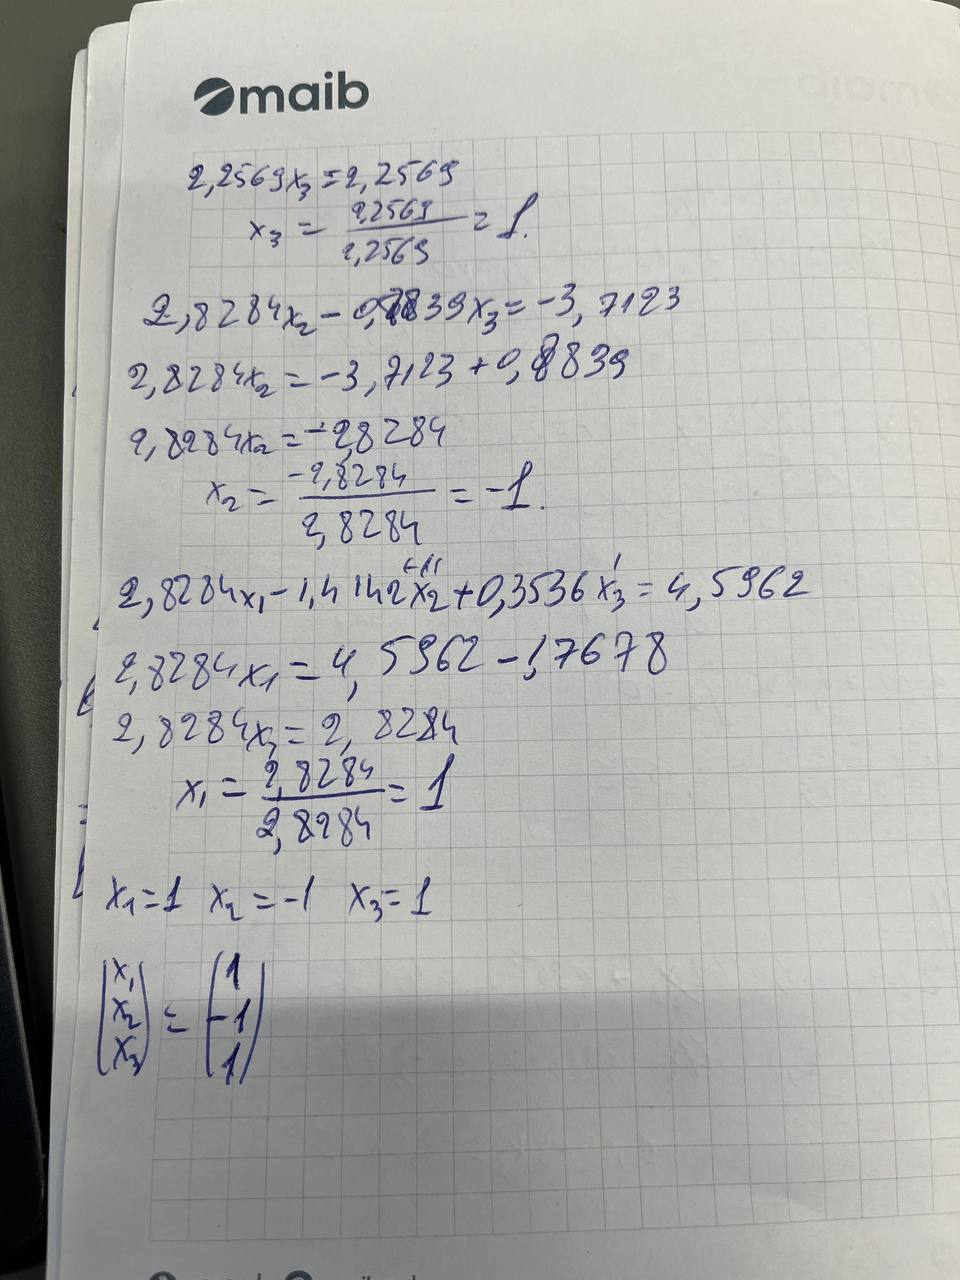 maib
2,2569x₃ = 2,2569
x₃ = 2,2569 / 2,2569 = 1.
2,8284x₂ - 0,8839x₃ = -3,7123
2,8284x₂ = -3,7123 + 0,8839
2,8284x₂ = -2,8284
x₂ = -2,8284 / 2,8284 = -1.
2,8284x₁ - 1,4142x₂ + 0,3536x₃ = 4,5962
2,8284x₁ = 4,5962 - 1,7678
2,8284x₁ = 2,8284
x₁ = 2,8284 / 2,8284 = 1
x₁ = 1 x₂ = -1 x₃ = 1
(x₁ (1
x₂ = -1
x₃) 1)